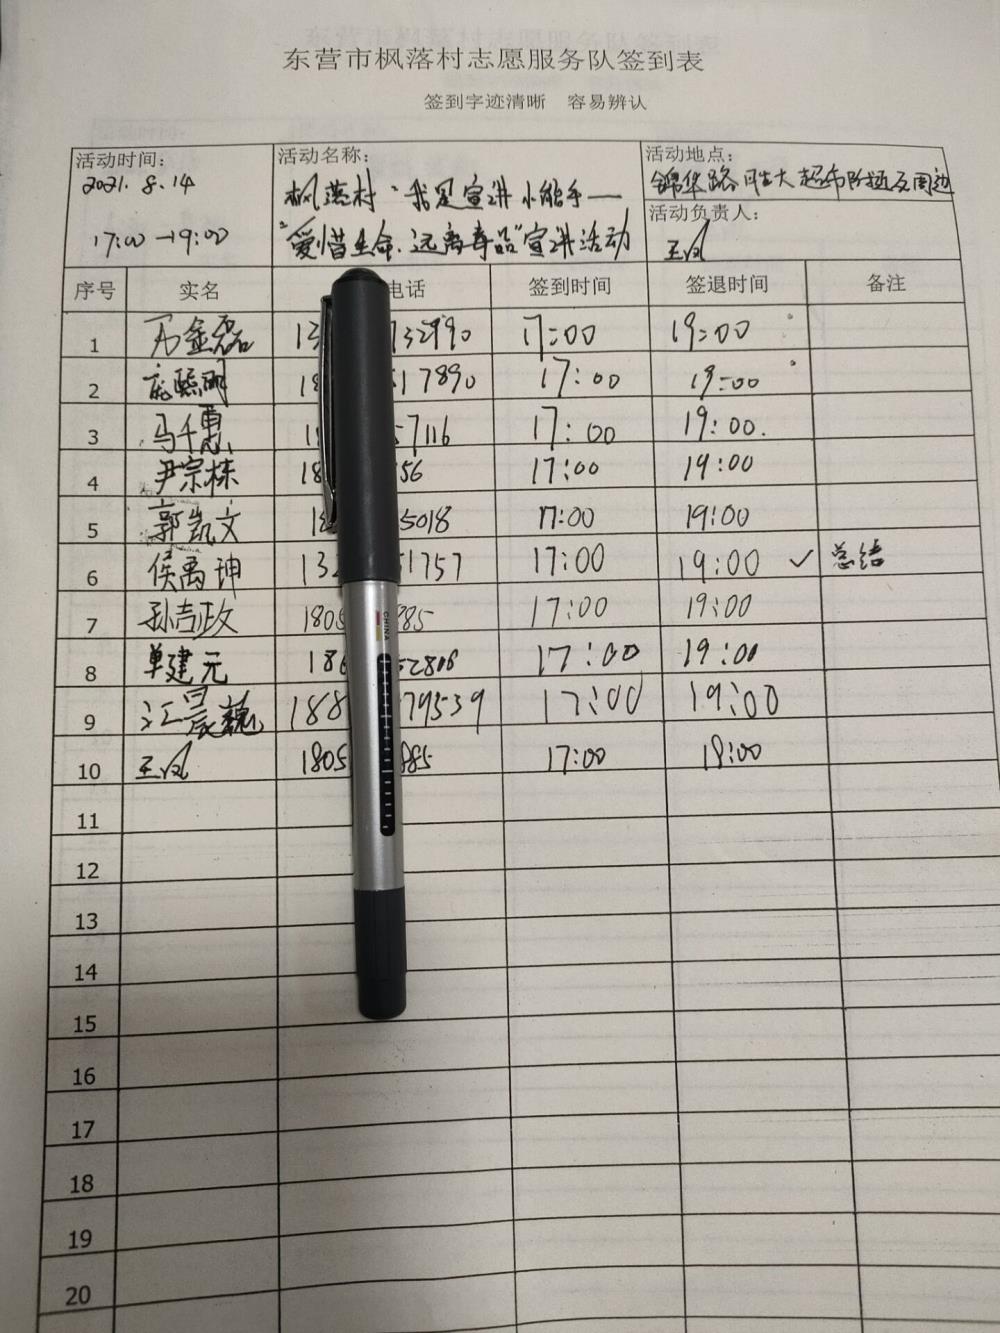 东营市枫落村志愿服务队签到表
签到字迹清晰 容易辨认
活动时间:
2021.8.14
17:00-19:00
活动名称:
枫落村"我是宣讲小能手——
"爱惜生命.远离毒品"宣讲活动
活动地点:
锦华路 超市 及周边
活动负责人:
王风
序号 实名 电话 签到时间 签退时间 备注
1 金磊 13 732990 17:00 19:00
2 庞熙明 18 17890 17:00 19:00
3 马千惠 1 57116 17:00 19:00.
4 尹宗栋 18 56 17:00 19:00
5 郭凯文 5018 17:00 19:00
6 侯禹坤 132 51757 17:00 19:00 ✓ 总结
7 孙吉政 1805 885 17:00 19:00
8 单建元 186 52806 17:00 19:00
9 江晨巍 188 79539 17:00 19:00
10 王风 1805 885 17:00 19:00
11
12
13
14
15
16
17
18
19
20
CHINA